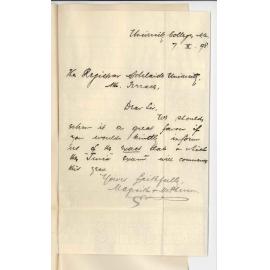 University College, Ade.
7 X 98
The Registrar Adelaide University,
Nth. Terrace.
Dear Sir,
We should
esteem it a great favor if
you would kindly inform
us of the exact date on which
the "Junior" Exam will commence
this year.
Yours faithfully,